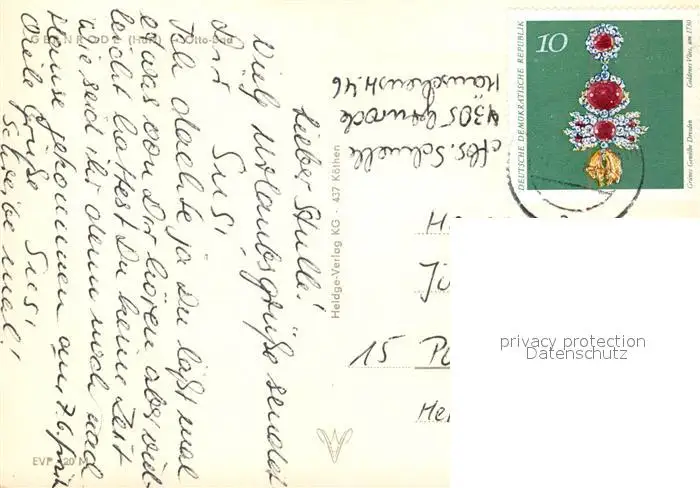 GERNRODE (Harz) Otto-Bad
Lieber Stulle!
Viele Urlaubsgrüße sendet
Dir Susi
Ich dachte ja Du läßt mal
etwas von Dir hören aber viel-
leicht hattest Du keine Zeit
wie seid ihr denn noch nach
Hause gekommen am 7.6. früh
Viele Grüße Susi
Schreibe mal!
EVP 20 M
Heldge-Verlag KG · 437 Köthen
Abs. Schnelle
4305 Gernrode
DEUTSCHE DEMOKRATISCHE REPUBLIK
10
Goldenes Vlies, um 1730
Grünes Gewölbe Dresden
15 Po
privacy protection
Datenschutz